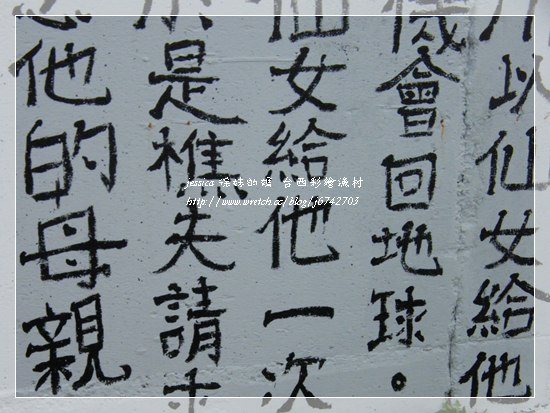 以仙女給他
會回地球。
仙女給他一次
是樵夫請
他的母親
jessica 的媽 台西彩繪漁村
http://www.wretch.cc/blog/j6742703